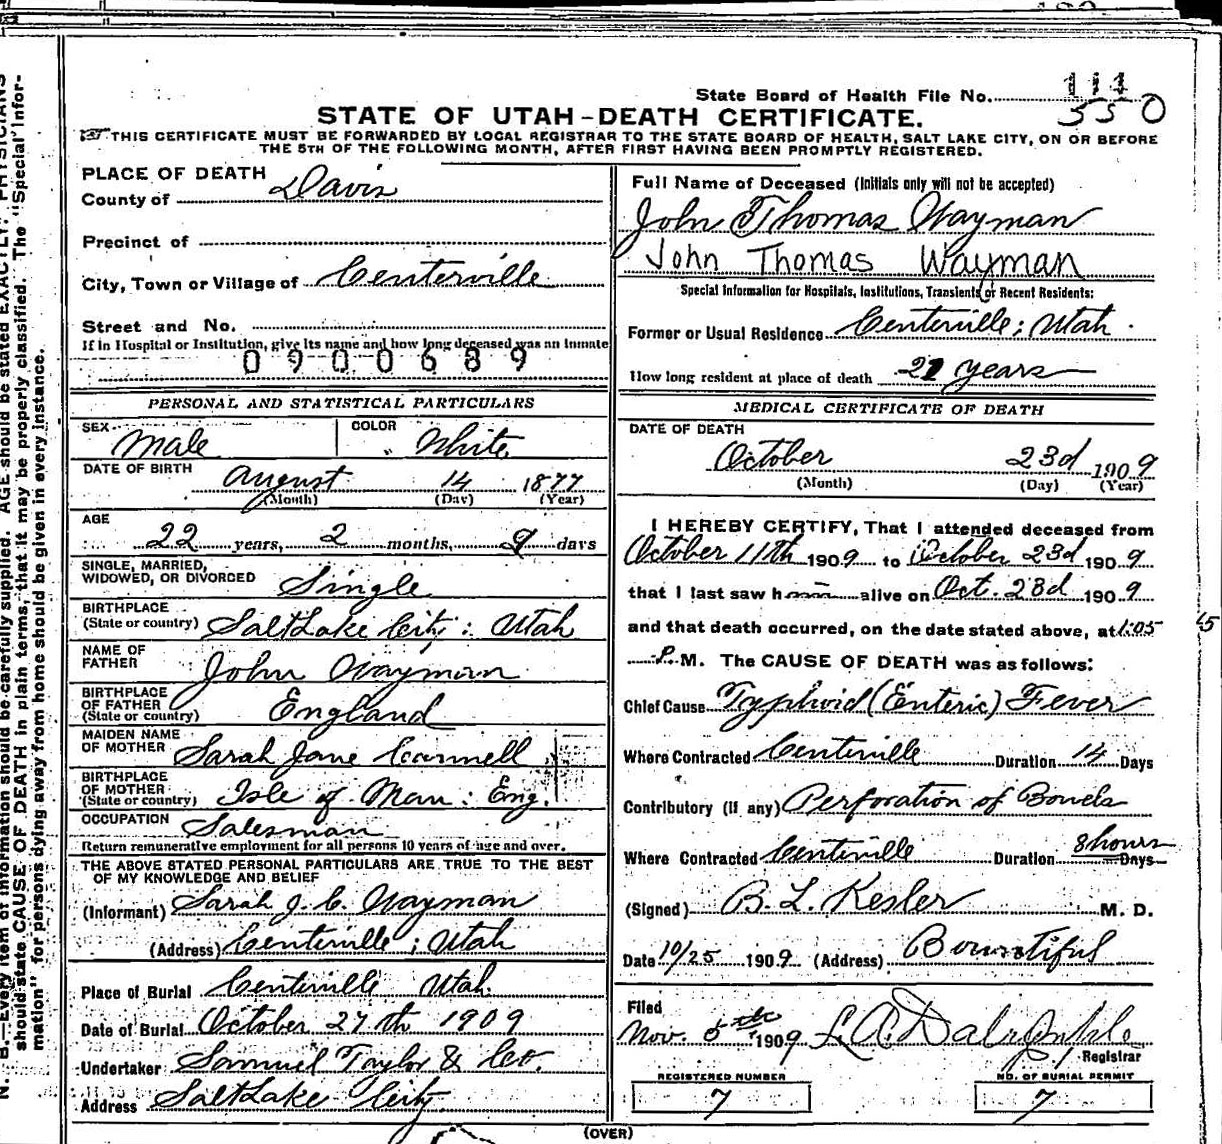 111
State Board of Health File No. 550
STATE OF UTAH-DEATH CERTIFICATE.
THIS CERTIFICATE MUST BE FORWARDED BY LOCAL REGISTRAR TO THE STATE BOARD OF HEALTH, SALT LAKE CITY, ON OR BEFORE
THE 5TH OF THE FOLLOWING MONTH, AFTER FIRST HAVING BEEN PROMPTLY REGISTERED.
PLACE OF DEATH
County of Davis
Precinct of
City, Town or Village of Centerville
Street and No.
If in Hospital or Institution, give its name and how long deceased was an inmate
0900689
PERSONAL AND STATISTICAL PARTICULARS
SEX Male COLOR White
DATE OF BIRTH August 14 1877
(Month) (Day) (Year)
AGE
22 years, 2 months, 9 days
SINGLE, MARRIED,
WIDOWED, OR DIVORCED Single
BIRTHPLACE
(State or country) Salt Lake City: Utah
NAME OF
FATHER John Wayman
BIRTHPLACE
OF FATHER
(State or country) England
MAIDEN NAME
OF MOTHER Sarah Jane Cannell
BIRTHPLACE
OF MOTHER
(State or country) Isle of Man: Eng.
OCCUPATION Salesman
Return remunerative employment for all persons 10 years of age and over.
THE ABOVE STATED PERSONAL PARTICULARS ARE TRUE TO THE BEST
OF MY KNOWLEDGE AND BELIEF
(Informant) Sarah J. C. Wayman
(Address) Centerville; Utah
Place of Burial Centerville Utah.
Date of Burial October 27th 1909
Undertaker Samuel Taylor & Co.
Address Salt Lake City
Full Name of Deceased (Initials only will not be accepted)
John Thomas Wayman
John Thomas Wayman
Special Information for Hospitals, Institutions, Transients or Recent Residents:
Former or Usual Residence Centerville; Utah.
How long resident at place of death 22 years
MEDICAL CERTIFICATE OF DEATH
DATE OF DEATH
October 23d 1909
(Month) (Day) (Year)
I HEREBY CERTIFY, That I attended deceased from
October 11th 1909 to October 23d 1909
that I last saw h alive on Oct. 23d 1909
and that death occurred, on the date stated above, at 1:05
P. M. The CAUSE OF DEATH was as follows:
Chief Cause Typhoid (Enteric) Fever
Where Contracted Centerville Duration 14 Days
Contributory (if any) Perforation of Bowels
Where Contracted Centerville Duration 8 hours Days
(Signed) B. L. Kesler M. D.
Date 10/25 1909 (Address) Bountiful
Filed
Nov. 5th 1909 L. A. Dalrymple
Registrar
REGISTERED NUMBER NO. OF BURIAL PERMIT
7 7
(OVER)
N. B.—Every item of information should be carefully supplied. AGE should be stated EXACTLY. PHYSICIANS
should state CAUSE OF DEATH in plain terms, that it may be properly classified. The "Special Infor-
mation" for persons dying away from home should be given in every instance.